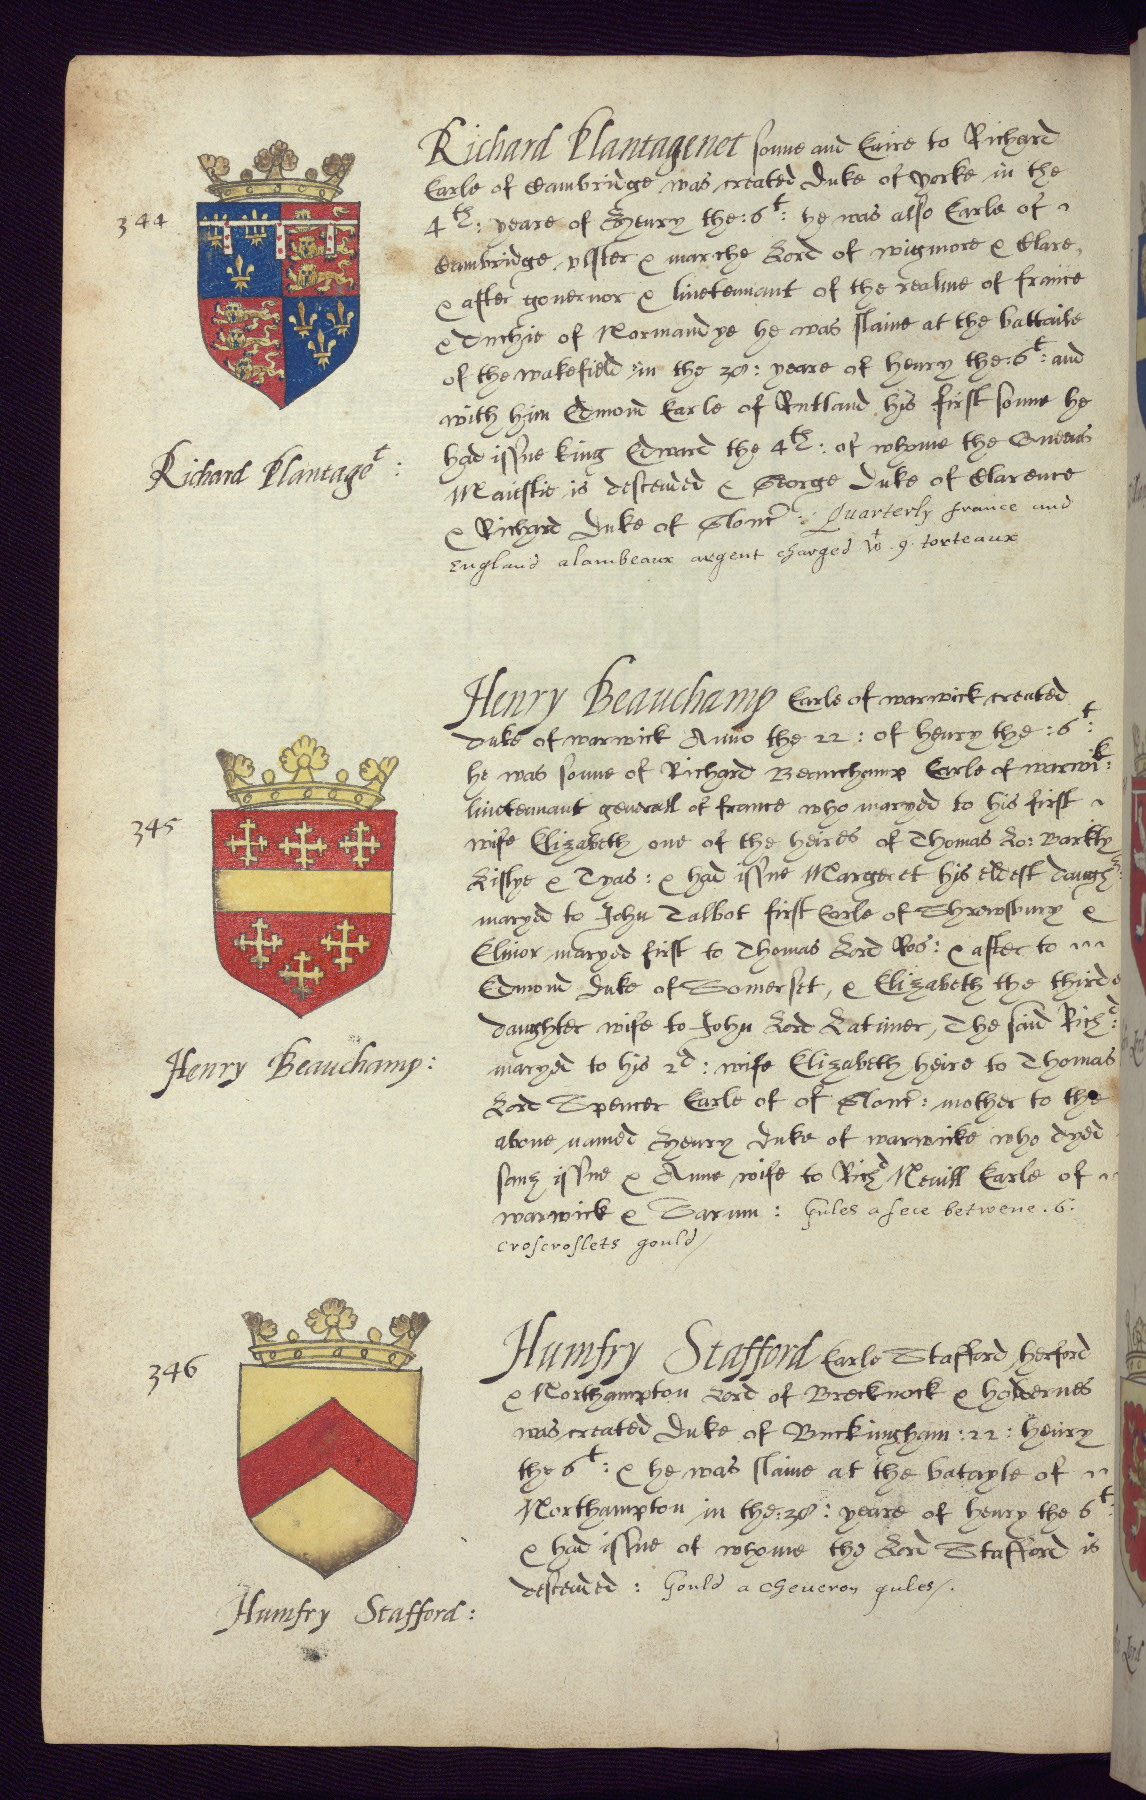 344
Richard Plantagenet sonne and haire to Richard
Earle of Cambridge was created Duke of Yorke in the
4th: yeare of Henry the: 6t: he was also Earle of
Cambridge vlster & marche Lord of wigmore & Clare
& after governor & liuetennant of the realme of france
& Duchie of Normandye he was slaine at the battaile
of the wakefield in the 38: yeare of henry the: 6t: and
with him Edmond Earle of Rutland his first sonne he
had issue king Edward the 4th: of whome the Queens
Maiestie is descended & George Duke of Clarence
& Richard Duke of Glouc: Quarterly france and
England a lambeaux argent charged wt .9. torteaux
Richard Plantaget:
345
Henry Beauchamp Earle of warwick created
Duke of warwick Anno the 22: of henry the: 6t:
he was sonne of Richard Beauchamp Earle of warwik:
liuetennant generall of france who maryed to his first
wife Elizabeth one of the heires of Thomas Lo: Barkly
Lislye & Tyas: & had issue Margeret his eldest daugh:
maryed to John Talbot first Earle of Shrewsbury &
Elinor maryed first to Thomas Lord Ros: & after to
Edmond Duke of Somerset, & Elizabeth the third
daughter wife to John Lord Latimer, The said Richd:
maryed to his 2d: wife Elizabeth heire to Thomas
Lord Spencer Earle of of Glouc: mother to the
aboue named Henry Duke of warwicke who dyed
sanz issue & Anne wife to Richd Nevill Earle of
warwick & Sarum: Gules a fece betwene .6.
croscroslets gould
Henry Beauchamp:
346
Humfry Stafford Earle Stafford herford
& Northampton Lord of Brecknock & holdernes
was created Duke of Buckingham: 22: henry
the 6t: & he was slaine at the batayle of
Northampton in the: 38: yeare of henry the 6t:
& had issue of whome the Lord Stafford is
descended: Gould a cheueron gules.
Humfry Stafford: